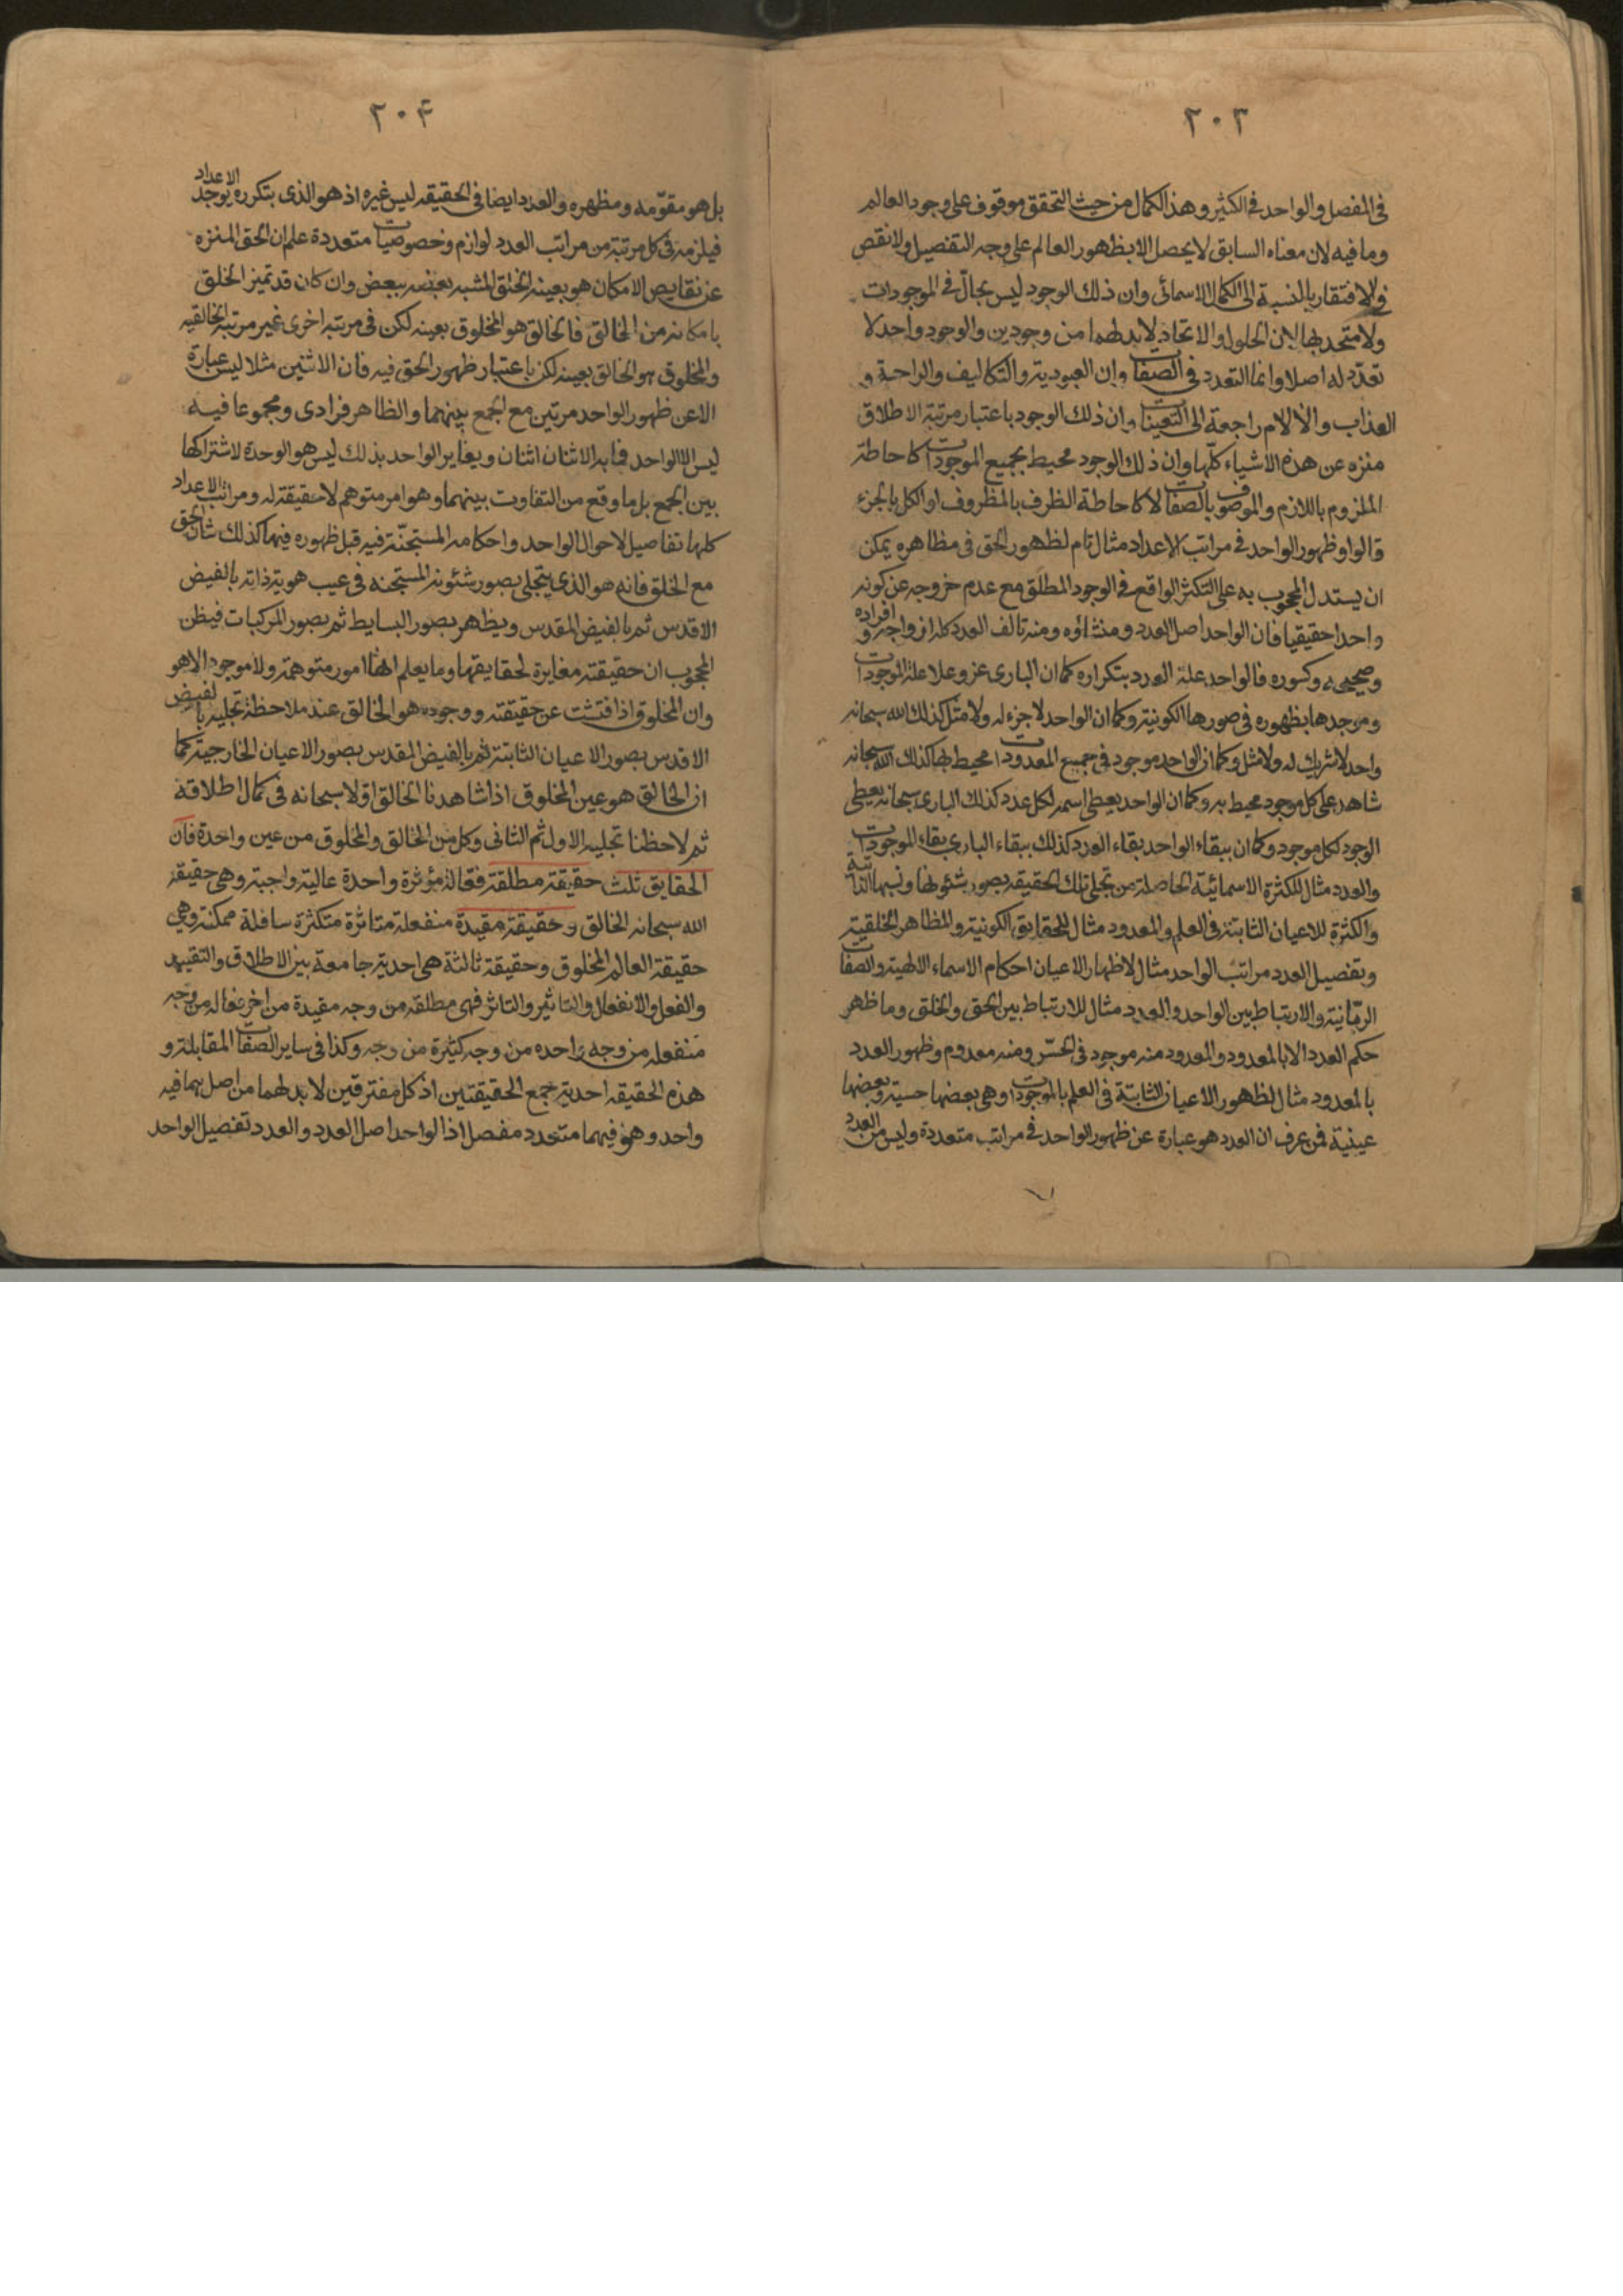 ٢٠٣
فى المفصل والواحد فى الكثير وهذا الكمال من حيث التحقق موقوف على وجود العالم
وما فيه لان معناه السابق لا يحصل الا بظهور العالم على وجه التفصيل ولا نقص
فى الافتقار بالنسبة الى الكمال الاسمائى وان ذلك الوجود ليس بحالّ فى الموجودات
ولا متحد بها لان الحلول والاتحاد لا بد لهما من وجودين والوجود واحد لا
تعدّد له اصلا وانما التعدد فى الصفات وان العبودية والتكاليف والراحة و
العذاب والالام راجعة الى التعينات وان ذلك الوجود باعتبار مرتبة الاطلاق
منزه عن هذه الاشياء كلّها وان ذلك الوجود محيط بجميع الموجودات كاحاطة
الملزوم باللازم والموصوف بالصفات لا كاحاطة الظرف بالمظروف او الكل بالجزء
قالوا وظهور الواحد فى مراتب الاعداد مثال تام لظهور الحق فى مظاهره يمكن
ان يستدل المحجوب به على التكثر الواقع فى الوجود المطلق مع عدم خروجه عن كونه
واحدا حقيقيا فان الواحد اصل العدد ومنشاؤه ومنه تالف العدد كله ازواجه و افراده
وصحيحه وكسوره فالواحد علة العدد بتكراره كما ان البارى عز وعلا علة الموجودات
وموجدها بظهوره فى صورها الكونية وكما ان الواحد لا جزء له ولا مثل كذلك الله سبحانه
واحد لا شريك له ولا مثل وكما ان الواحد موجود فى جميع المعدودات محيط بها كذلك الله سبحانه
شاهد على كل موجود محيط به وكما ان الواحد يعطى اسمه لكل عدد كذلك البارى سبحانه يعطى
الوجود لكل موجود وكما ان ببقاء الواحد بقاء العدد كذلك ببقاء البارى بقاء الموجودات
والعدد مثال للكثرة الاسمائية الحاصلة من تجلى تلك الحقيقه بصور شئونها ونسبها الذاتية
والكثرة للاعيان الثابتة فى العلم والمعدود مثال للحقايق الكونية والمظاهر الخلقية
وتفصيل العدد مراتب الواحد مثال لاظهار الاعيان احكام الاسماء الالهية والصفات
الربّانية والارتباط بين الواحد والعدد مثال للارتباط بين الحق والخلق وما ظهر
حكم العدد الا بالمعدود والمعدود منه موجود فى الحسّ ومنه معدوم وظهور العدد
بالمعدود مثال لظهور الاعيان الثابتة فى العلم بالموجودات وهى بعضها حسية وبعضها
عينية فمن عرف ان العدد هو عبارة عن ظهور الواحد فى مراتب متعددة وليس من العدد
٢٠۴
بل هو مقوّمه ومظهره والعدد ايضا فى الحقيقه ليس غيره اذ هو الذى بتكرره يوجد الاعداد
فيلزمه فى كل مرتبة من مراتب العدد لوازم وخصوصيات متعددة علم ان الحق المنزه
عن نقايص الامكان هو بعينه الخلق المشبه بعضه ببعض وان كان قد تميز الخلق
بامكانه من الخالق فالخالق هو المخلوق بعينه لكن فى مرتبه اخرى غير مرتبه الخالقيه
والمخلوق هو الخالق بعينه لكن باعتبار ظهور الحق فيه فان الاثنين مثلا ليس عبارة
الا عن ظهور الواحد مرتين مع الجمع بينهما والظاهر فرادى ومجموعا فيه
ليس الا الواحد فما به الاثنان اثنان ويغاير الواحد بذلك ليس هو الوحدة لاشتراكها
بين الجمع بل ما وقع من التفاوت بينهما وهو امر متوهم لا حقيقة له ومراتب الاعداد
كلها تفاصيل لاحوال الواحد واحكامه المستجنّة فيه قبل ظهوره فيها كذلك شان الحق
مع الخلق فانه هو الذى يتجلى بصور شئونه المستجنه فى غيب هوية ذاته بالفيض
الاقدس ثم بالفيض المقدس ويظهر بصور البسايط ثم بصور المركبات فيظن
المحجوب ان حقيقته مغايرة لحقايقها وما يعلم انها امور متوهمة ولا موجود الا هو
وان المخلوق اذا فتشت عن حقيقته ووجوده هو الخالق عند ملاحظة تجليه بالفيض
الاقدس بصور الاعيان الثابتة ثم بالفيض المقدس بصور الاعيان الخارجية كما
ان الخالق هو عين المخلوق اذا شاهدنا الخالق اوّلا سبحانه فى كمال اطلاقه
ثم لاحظنا تجليه الاول ثم الثانى وكل من الخالق والمخلوق من عين واحدة فان
الحقايق ثلث حقيقة مطلقة فعّالة مؤثرة واحدة عالية واجبة وهى حقيقة
الله سبحانه الخالق وحقيقة مقيدة منفعلة متاثرة متكثرة سافلة ممكنة وهى
حقيقة العالم المخلوق وحقيقة ثالثة هى احدية جامعة بين الاطلاق والتقييد
والفعل والانفعال والتاثير والتاثر فهى مطلقه من وجه مقيدة من اخر فعاله من وجه
منفعله من وجه واحده من وجه كثيرة من وجه وكذا فى ساير الصفات المقابلة و
هذه الحقيقه احدية جمع الحقيقتين اذ كل مفترقين لا بد لهما من اصل هما فيه
واحد وهو فيهما متعدد مفصل اذ الواحد اصل العدد والعدد تفصيل الواحد